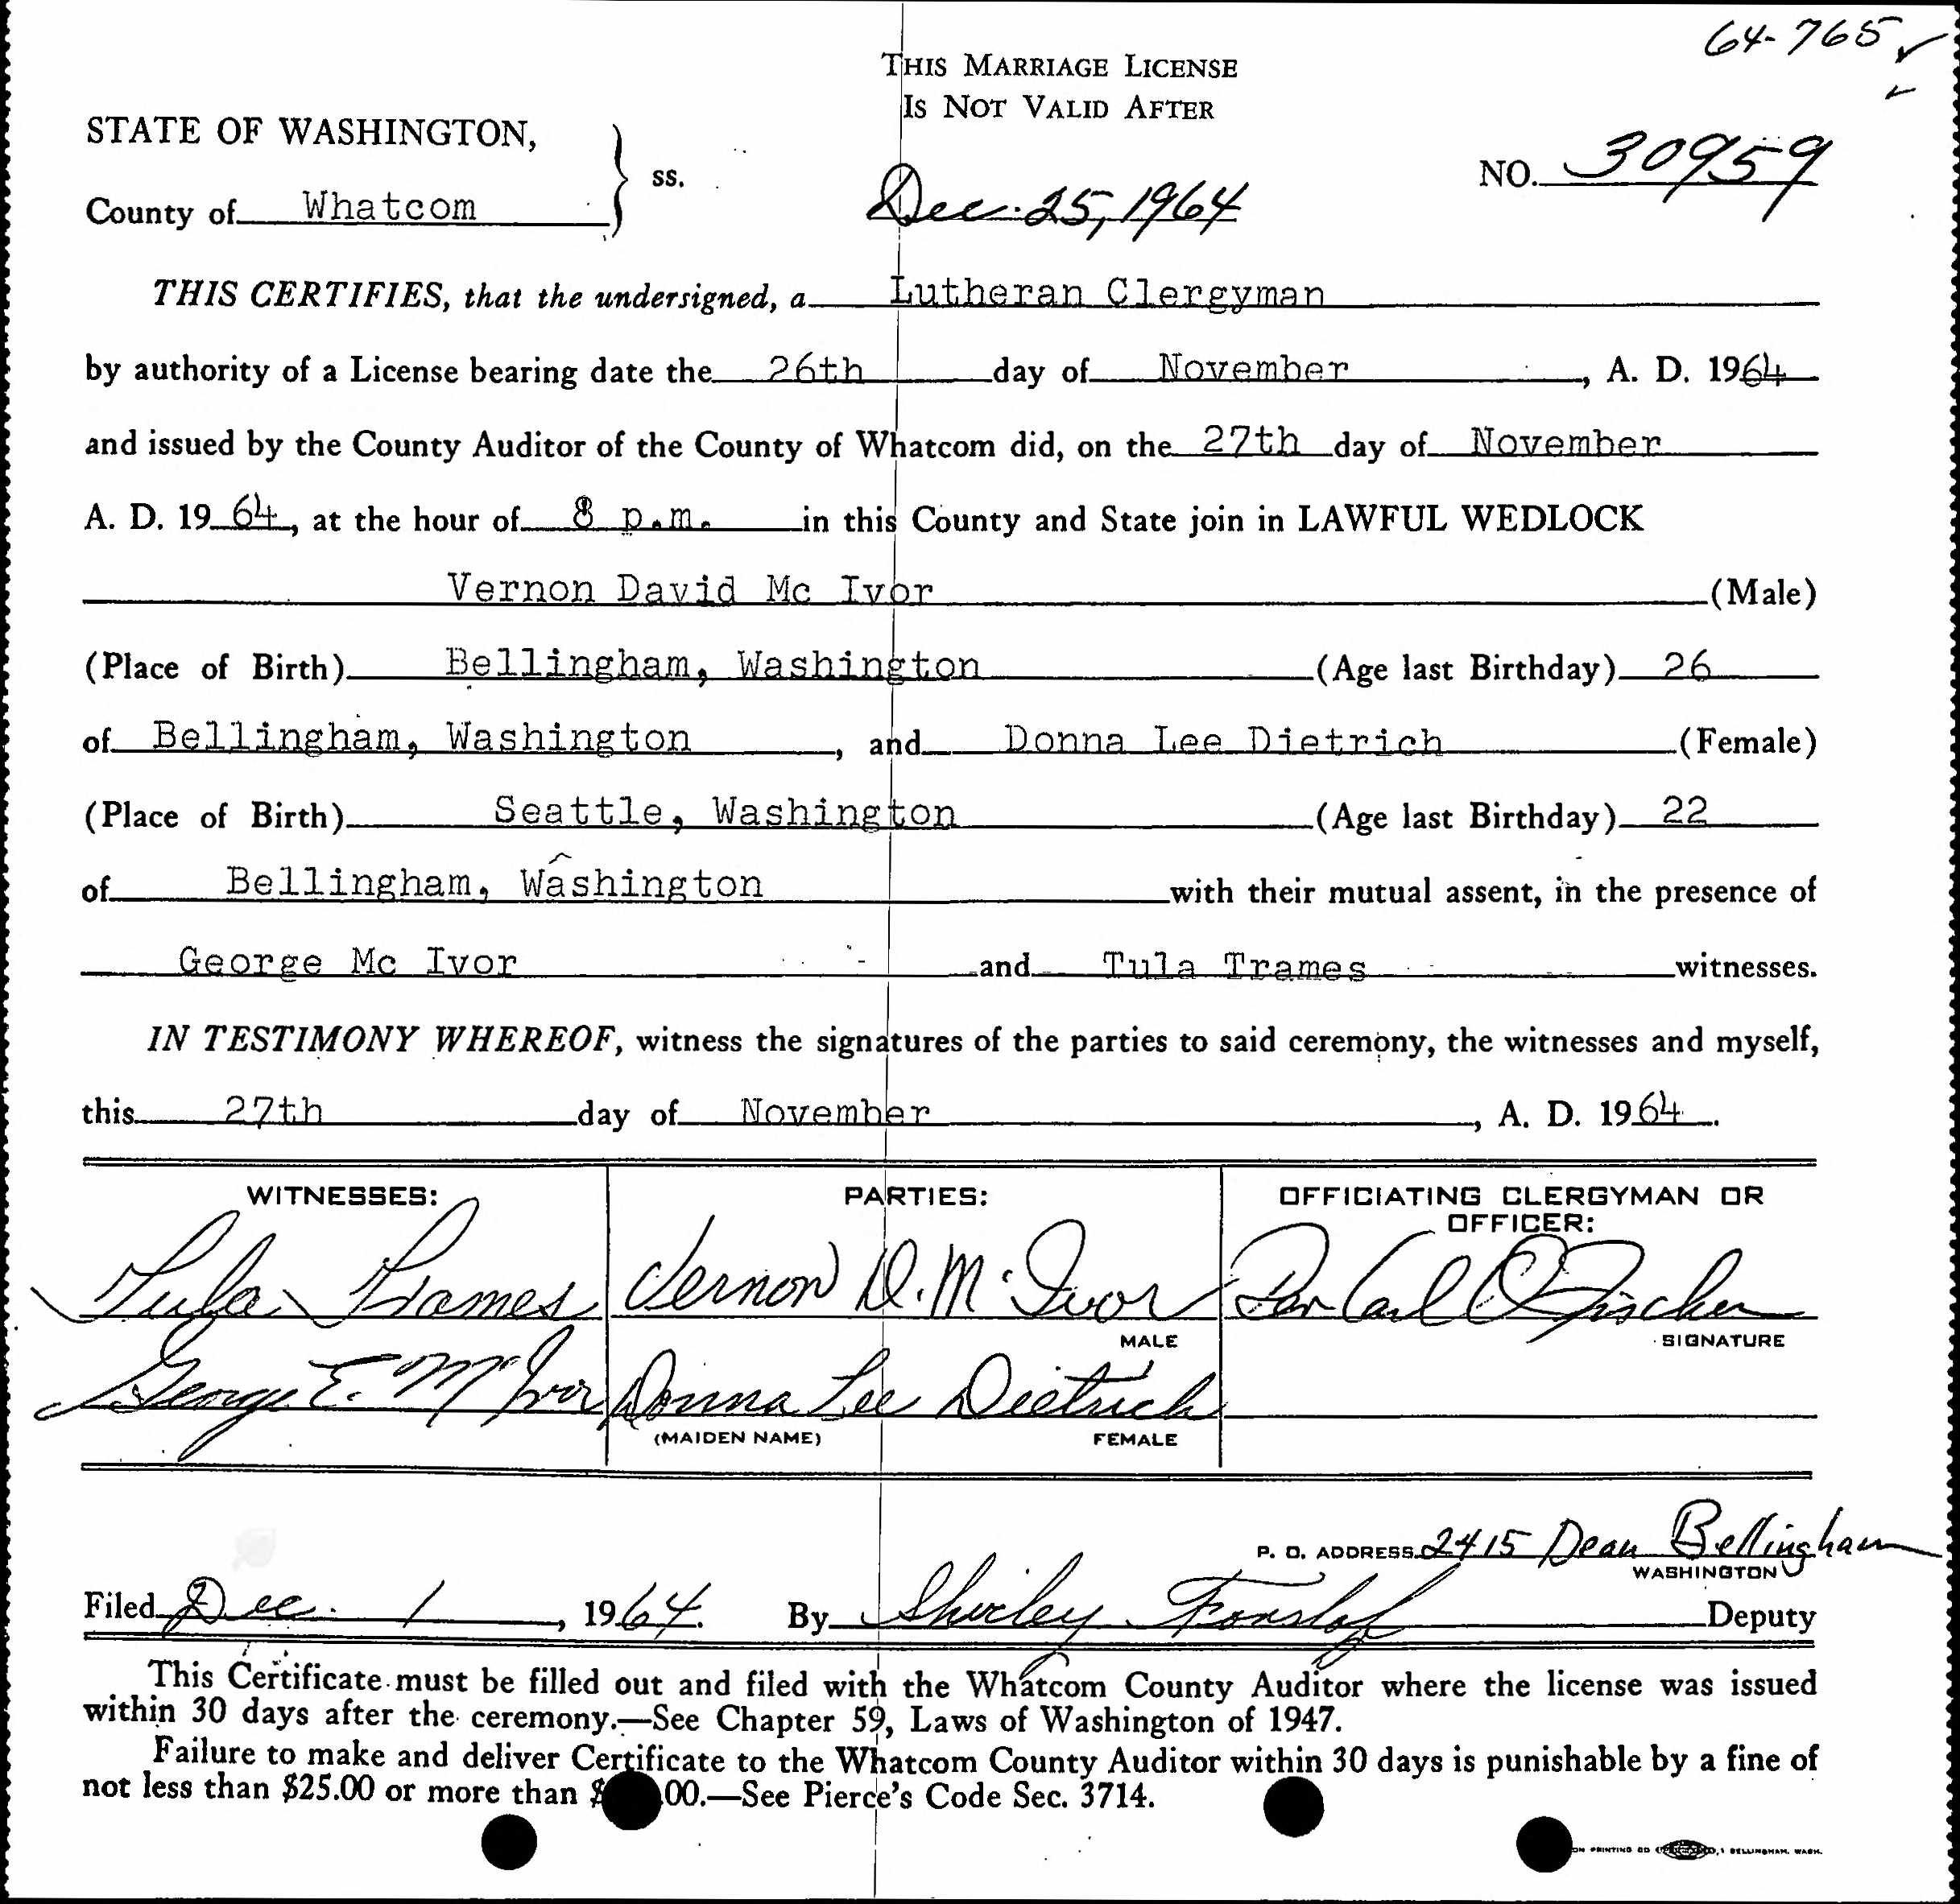 64-765
THIS MARRIAGE LICENSE
IS NOT VALID AFTER
STATE OF WASHINGTON,
ss.
NO. 30959
County of Whatcom
Dec. 25, 1964
THIS CERTIFIES, that the undersigned, a Lutheran Clergyman
by authority of a License bearing date the 26th day of November, A. D. 1964
and issued by the County Auditor of the County of Whatcom did, on the 27th day of November
A. D. 19 64, at the hour of 8 p.m. in this County and State join in LAWFUL WEDLOCK
Vernon David Mc Ivor (Male)
(Place of Birth) Bellingham, Washington (Age last Birthday) 26
of Bellingham, Washington, and Donna Lee Dietrich (Female)
(Place of Birth) Seattle, Washington (Age last Birthday) 22
of Bellingham, Washington with their mutual assent, in the presence of
George Mc Ivor and Tula Trames witnesses.
IN TESTIMONY WHEREOF, witness the signatures of the parties to said ceremony, the witnesses and myself,
this 27th day of November, A. D. 1964.
WITNESSES: PARTIES: OFFICIATING CLERGYMAN OR
OFFICER:
Tula Trames Vernon D. Mc Ivor Carl O Fischer
MALE SIGNATURE
George E. Mc Ivor Donna Lee Dietrich
(MAIDEN NAME) FEMALE
P. O. ADDRESS 2415 Dean Bellingham
WASHINGTON
Filed Dec. 1, 1964. By Shirley Forslof Deputy
This Certificate must be filled out and filed with the Whatcom County Auditor where the license was issued
within 30 days after the ceremony.—See Chapter 59, Laws of Washington of 1947.
Failure to make and deliver Certificate to the Whatcom County Auditor within 30 days is punishable by a fine of
not less than $25.00 or more than $ 00.—See Pierce's Code Sec. 3714.
PRINTING CO BELLINGHAM, WASH.